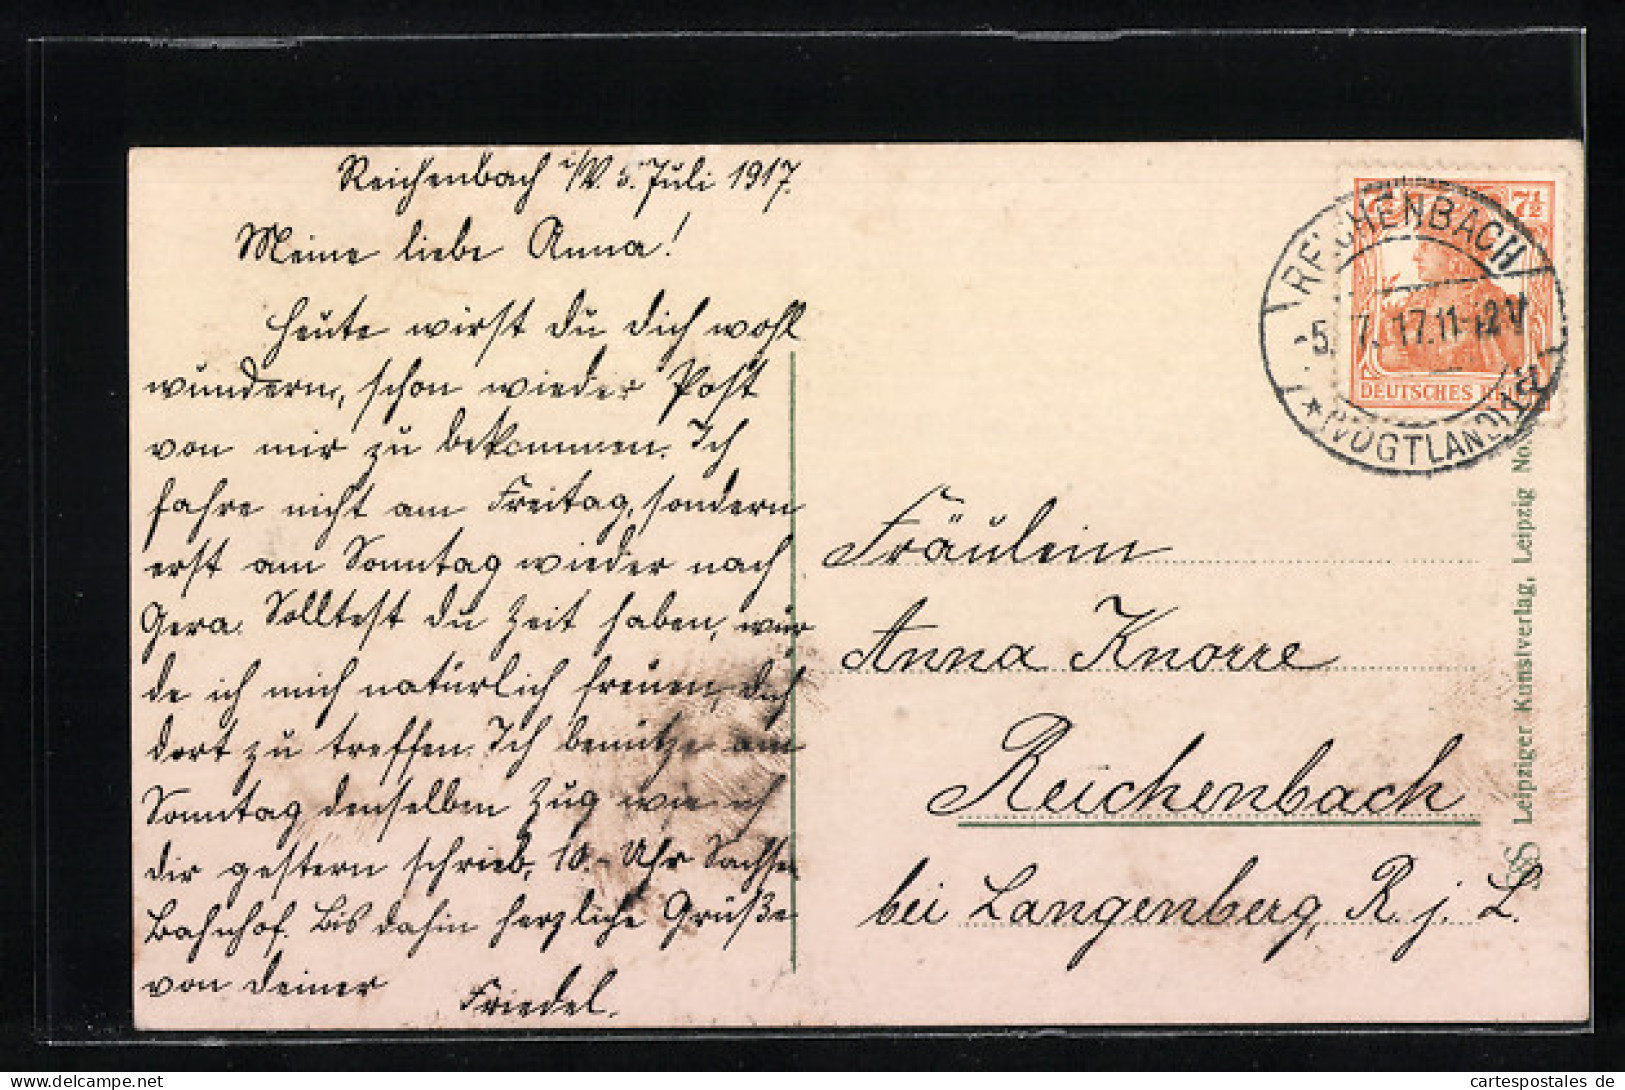 Reichenbach i/V. 5. Juli 1917.
Meine liebe Anna!
Heute wirst du dich wohl
wundern, schon wieder Post
von mir zu bekommen. Ich
fahre nicht am Freitag, sondern
erst am Sonntag wieder nach
Gera. Solltest du Zeit haben, wür
de ich mich natürlich freuen, dich
dort zu treffen. Ich benütze am
Sonntag denselben Zug wie ich
dir gestern schrieb, 10.- Uhr Sächs
Bahnhof. Bis dahin herzliche Grüße
von deiner
Friedel.
7½ 7½
DEUTSCHES
REICHENBACH
5. 7. 17. 11-12 V
* (VOGTLAND) 1
Fräulein
Anna Knorre
Reichenbach
bei Langenberg, R. j. L.
Leipziger Kunstverlag, Leipzig No
www.cartespostales.de
cartespostales de